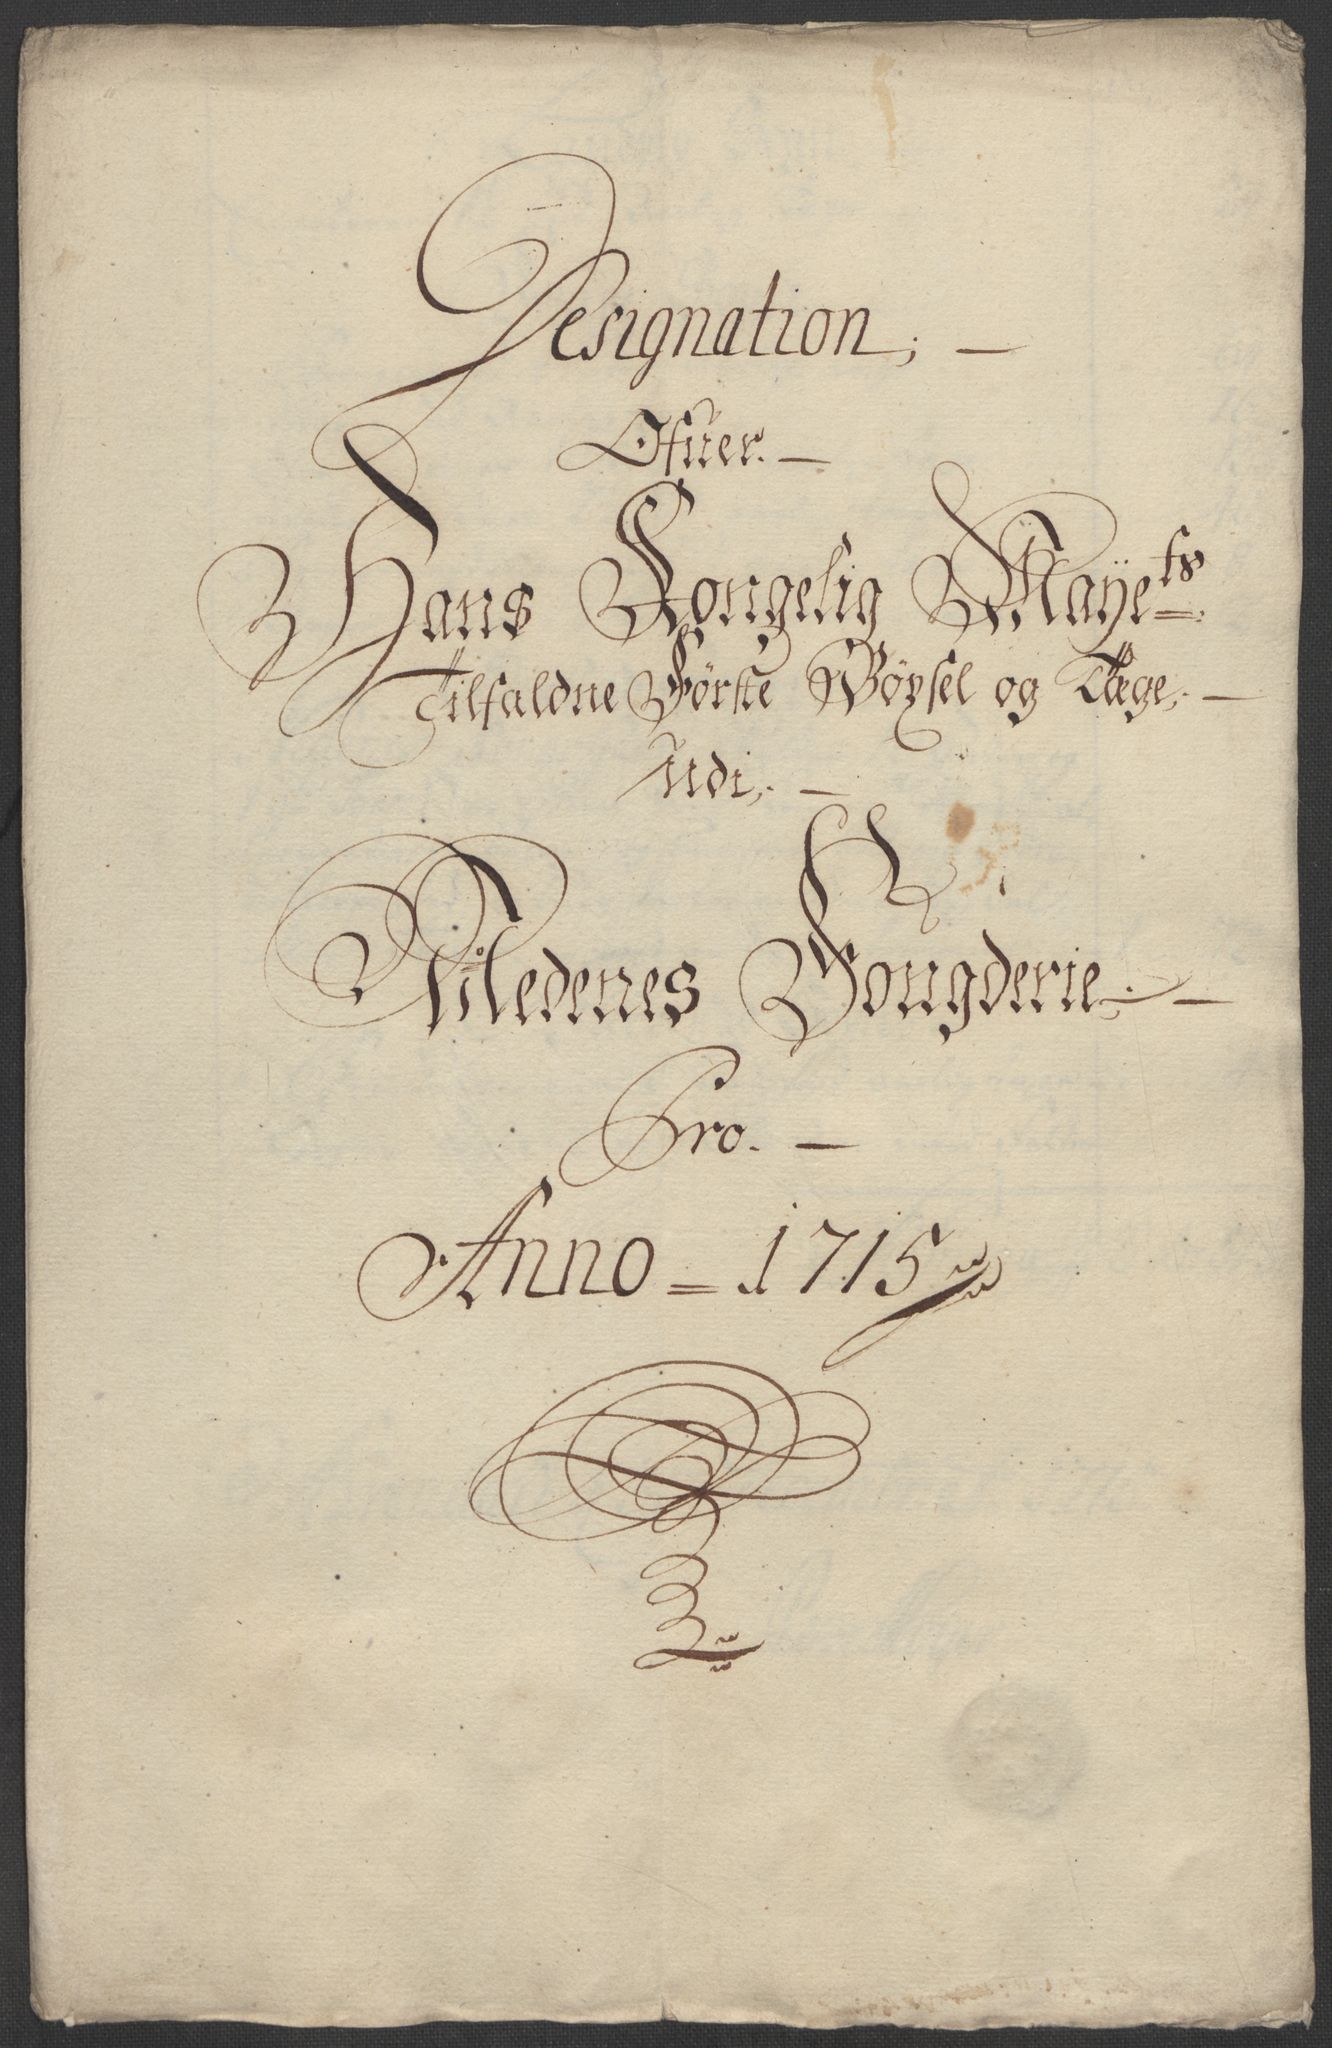 Designation,
Ofuer.
Hans Kongelig Mayets.
Tilfaldne Förste Böysel og Tæge,
Udi,
Nedenes Fougderie
Pro.
Anno = 1715